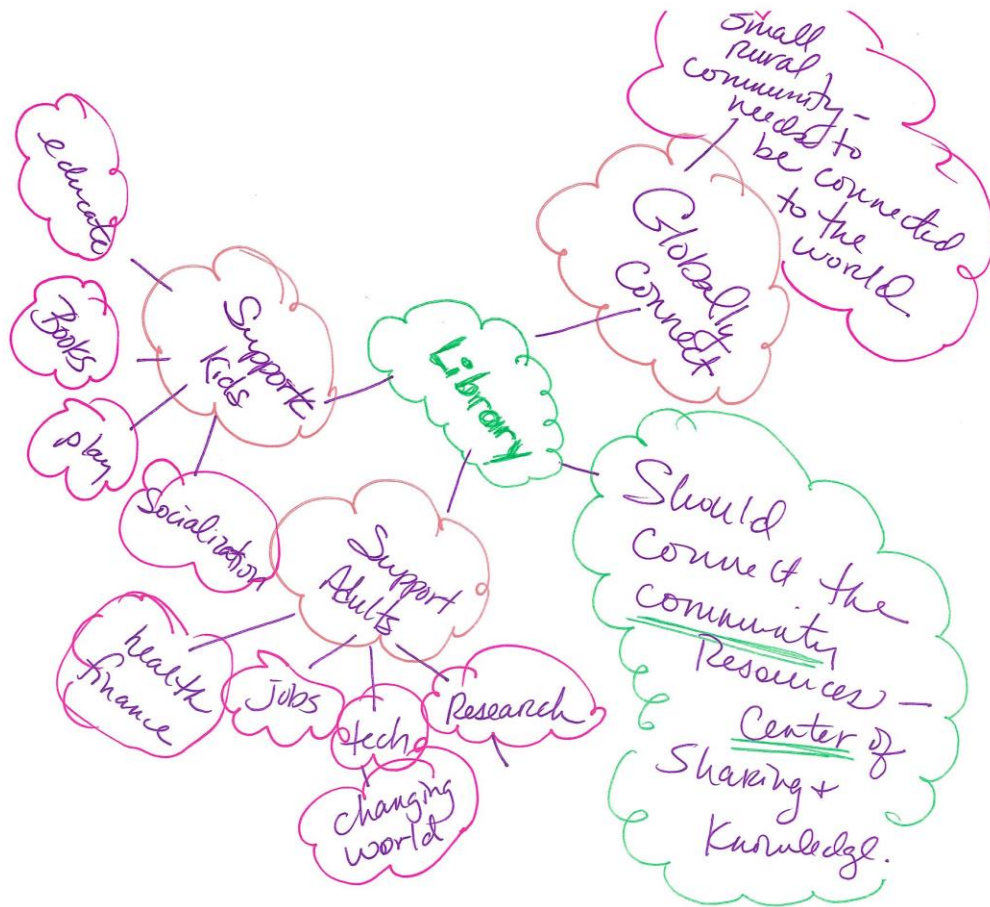 Small
rural
community-
needs to
be connected
to the
world
Globally
Connect
Library
educate
Books
play
Support
Kids
Socialization
Support
Adults
health
finance
Jobs
tech
changing
world
Research
Should
Connect the
community
Resources —
Center of
Sharing +
Knowledge.